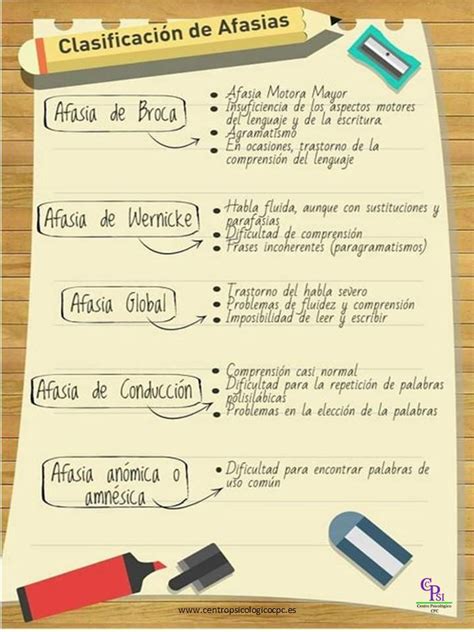 Clasificación de Afasias
Afasia de Broca
Afasia Motora Mayor
Insuficiencia de los aspectos motores
del lenguaje y de la escritura.
Agramatismo
En ocasiones, trastorno de la
comprensión del lenguaje
Afasia de Wernicke
Habla fluida, aunque con sustituciones y
parafasias
Dificultad de comprensión
Frases incoherentes (paragramatismos)
Afasia Global
Trastorno del habla severo
Problemas de fluidez y comprensión
Imposibilidad de leer y escribir
Afasia de Conducción
Comprensión casi normal
Dificultad para la repetición de palabras
polisilábicas
Problemas en la elección de la palabras
Afasia anómica o
amnésica
Dificultad para encontrar palabras de
uso común
www.centropsicologicocpc.es
CPSI
Centro Psicológico
CPC